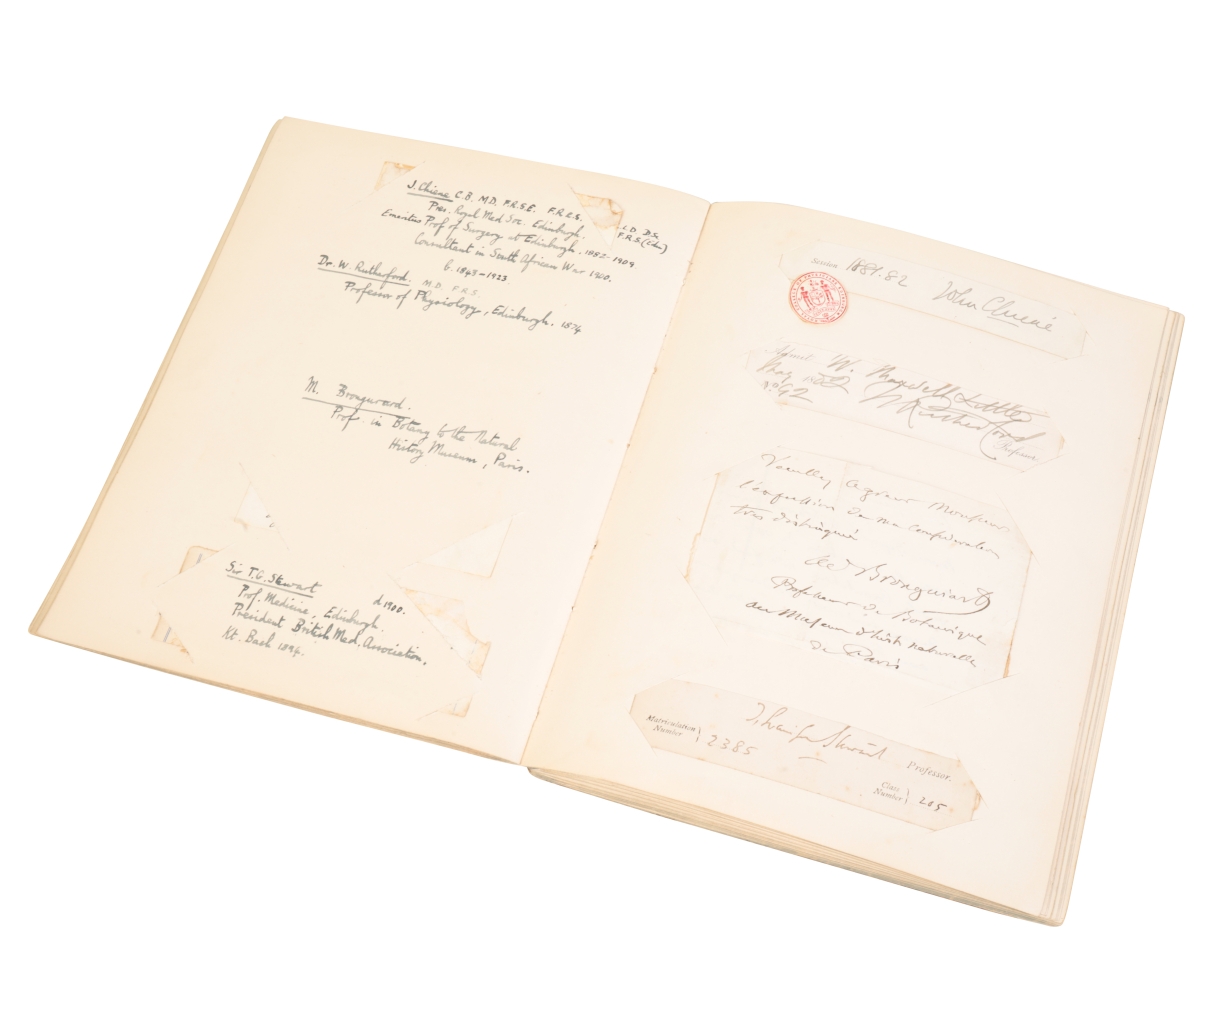 J. Chiene C.B. M.D. F.R.S.E. F.R.C.S.
L.D. D.Sc
Pres. Royal Med Soc. Edinburgh.
F.R.S.(Edin)
Emeritus Prof of Surgery at Edinburgh. 1882-1909
Consultant in South African War 1900.
b. 1843-1923
Dr. W. Rutherford. M.D. F.R.S.
Professor of Physiology, Edinburgh. 1874
M. Brongniard.
Prof in Botany to the Natural
History Museum, Paris.
Sir T.G. Stewart d 1900.
Prof. Medicine, Edinburgh.
President British Med. Association.
Kt. Bach 1894.
Session 1881.82 John Chiene
Admit W. Maxwell Little
May 1882
No. 92 W Rutherford
Professor
Veuillez agréer Monsieur
l'expression de ma considération
très distinguée
Ad Brongniart
Professeur de Botanique
au Muséum d'hist. naturelle
de Paris
T. Grainger Stewart
Matriculation Number 2385
Professor.
Class Number 205